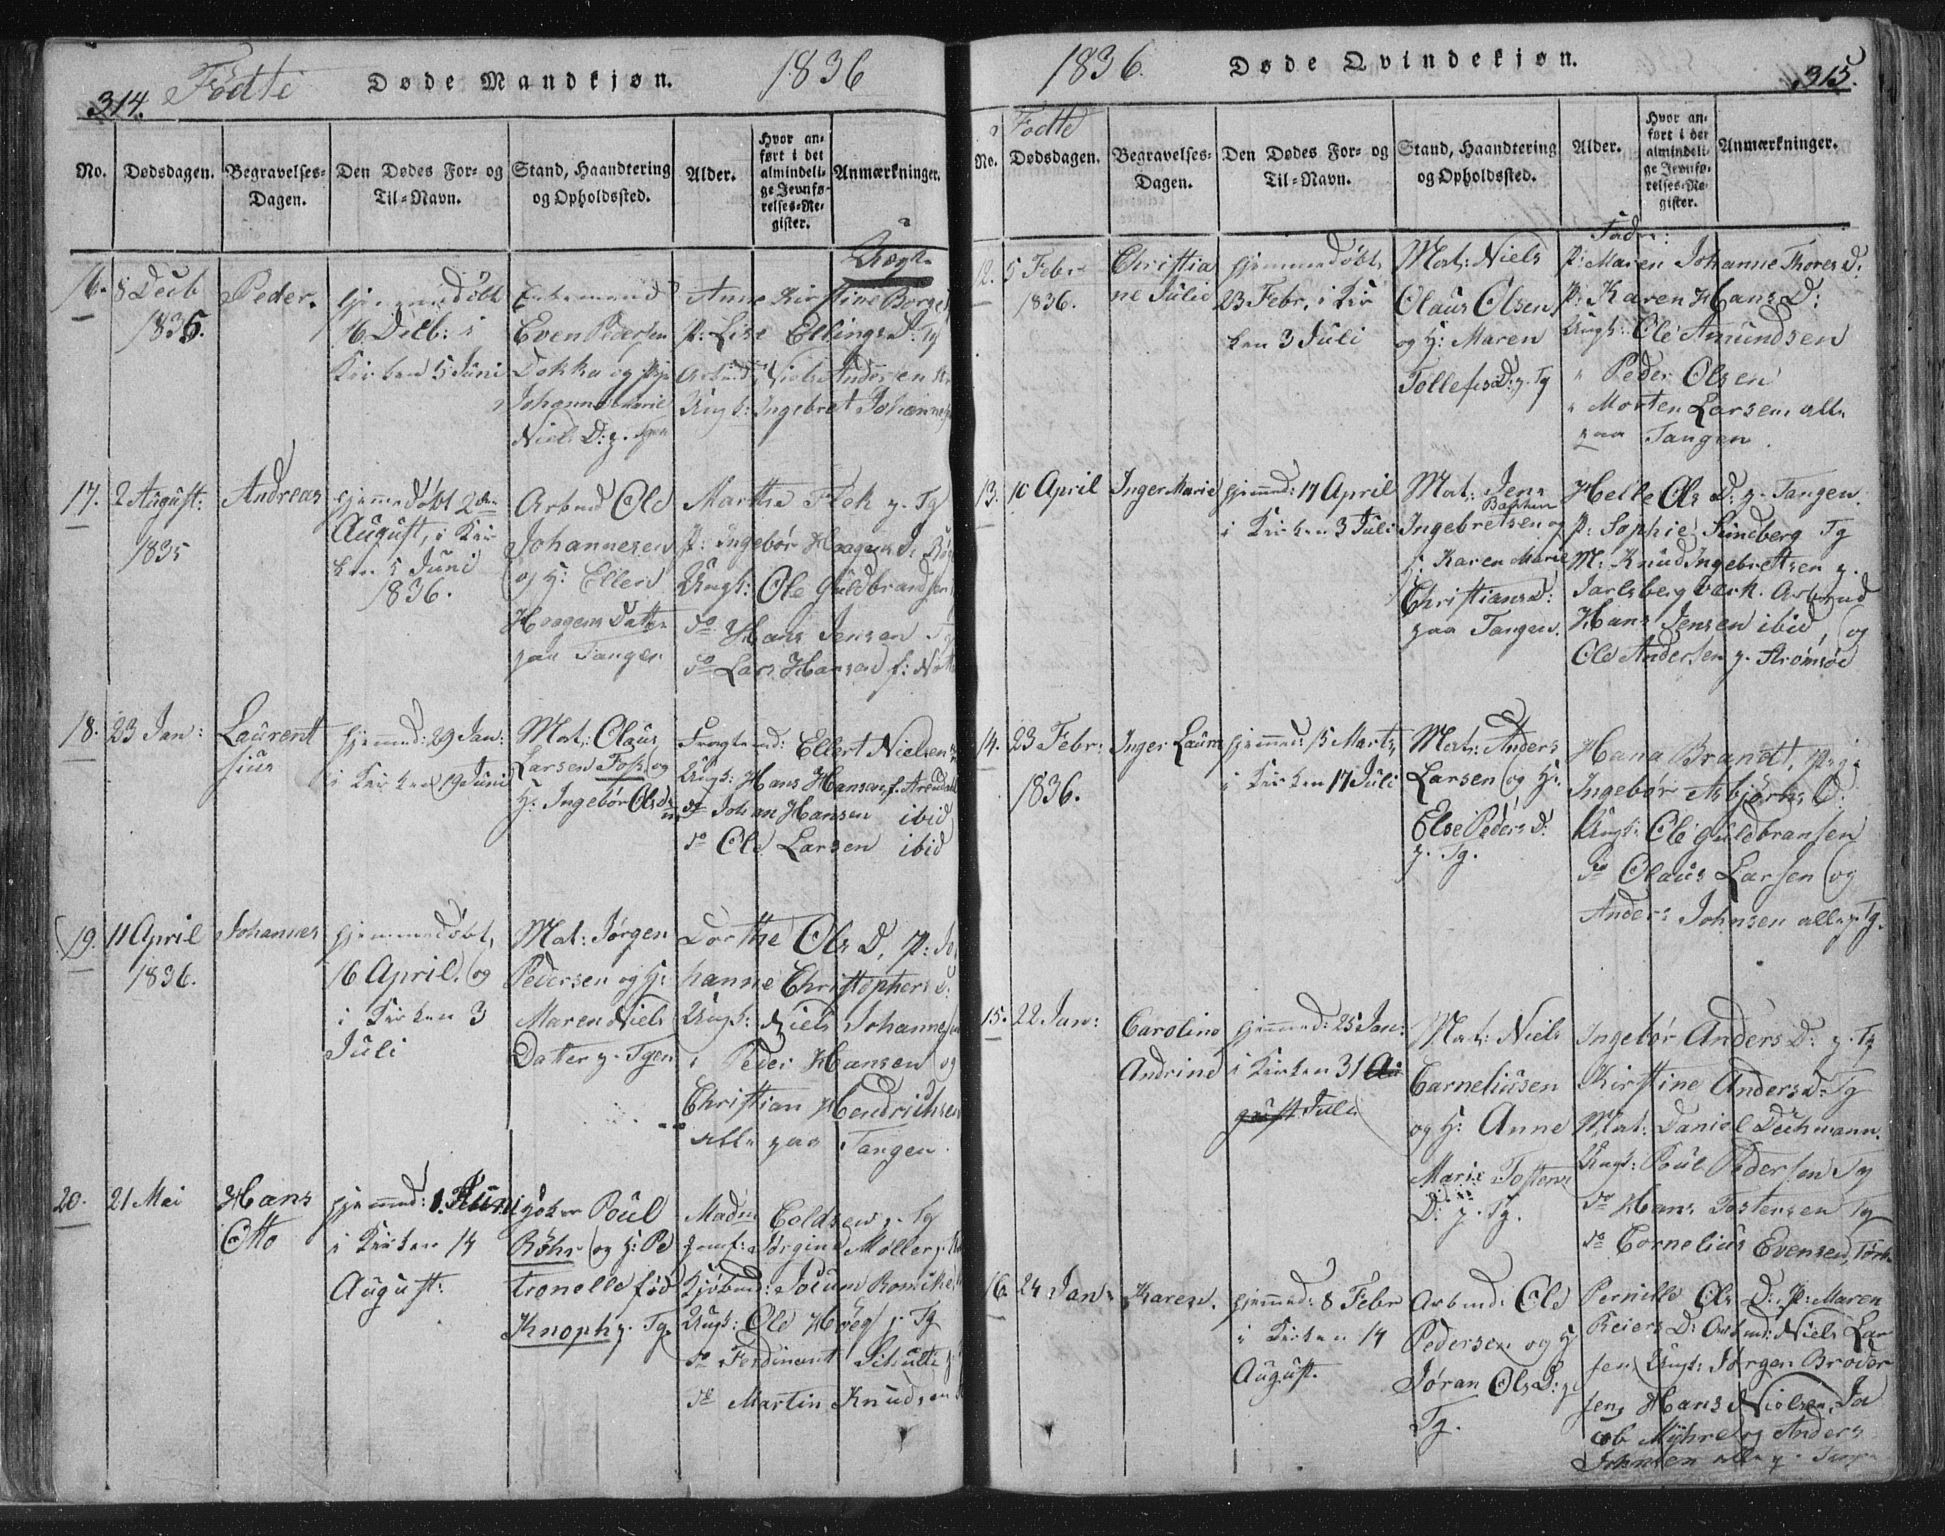 314.
Födte
Døde Mandkjøn.
1836
No.
Dødsdagen.
Begravelses-
Dagen.
Den Dødes For- og
Til-Navn.
Stand, Haandtering
og Opholdssted.
Alder.
Hvor an-
ført i det
almindeli-
ge Jevnfø-
relses-Re-
gister.
Anmærkninger.
16.
8 Decb
1835.
Peder.
hjemmedöbt
16 Decb: i
Kirken 5 Juni
Enkemand
Even Pedersen
Dokka og
Johanne Marie
Niels D: p. Tgen
Uægte
Anne Kirstine Borge
P: Lise Ellings D: Tg
Arbmd Niels Andersen
Ungk: Ingebret Johannes
17.
2 August:
1835
Andreas
hjemmedöbt 2den
August, i Kir
ken 5 Juni
1836.
Arbmd Ole
Johannesen
og H: Ellen
Haagens Datter
paa Tangen
Marthe Flek p. Tg
P: Ingebör Haagens D.
Ungk: Ole Guldbrandsen
do Hans Jensen Tg
do Lars Hansen f:
18.
23 Jan:
Laurent
sius
hjemmed: 29 Jan:
i Kirken 19 Juni
Mat: Olaus
Larsen Foss og
H: Ingebör Olsd:
Fragtmd: Ellert Nielsen
Ungk: Hans Hansen, f. Arendal
do Johan Hansen ibid
do Ole Larsen ibid
19.
11 April
1836.
Johannes
hjemmedöbt,
16 April og
i Kirken 3
Juli
Mat: Jørgen
Pedersen og H:
Maren Niels
Dater p. Tgen
Dorthe Ols D, P: Jo
hanne Christophers D:
Ungk: Niels Johannesen
" Peder Hansen og
Christian Hendrichsen
alle paa Tangen.
20.
21 Mai
Hans
Otto
hjemmed: 1. Juni
i Kirken 14
August:
Høker Poul
Röhr og H: Pe
tronelle född
Knoph p. Tg.
Madm Coldsen p. Tg
Jomf: Jörgine Møller p.
Kjöbmd: Jocum Romcke
Ungk: Ole Høeg p. Tg
do Ferdinant Schulte
do Martin Knudsen
1836.
Døde Qvindekjøn.
315.
Födte
No.
Dødsdagen.
Begravelses-
Dagen.
Den Dødes For- og
Til-Navn.
Stand, Haandtering
og Opholdssted.
Alder.
Hvor an-
ført i det
almindeli-
ge Jevnfø-
relses-Re-
gister.
Anmærkninger.
12.
5 Febr
1836.
Christia
ne Julie
hjemmedöbt
23 Febr, i Kir
ken 3 Juli
Mat: Niels
Olaus Olsen
og H: Maren
Tollefs D: p. Tg
Fadr:
P: Maren Johanne Thores D:
P: Karen Hans D:
Ungk: Ole Amundsen
" Peder Olsen
" Morten Larsen, alle
paa Tangen.
13.
10 April
Inger Marie
hjemmd: 17 April
i Kirken 3 Juli
Mat: Jens
Ingebretsen og
H: Karen Marie
Christians D:
paa Tangen.
Helle Ols D: p. Tangen.
P: Sophie Sundberg Tg
M: Knud Ingebretsen p.
Jarlsberg værk. Arbmd
Hans Jensen ibid, og
Ole Andersen p. Strömsöe
14.
23 Febr:
1836.
Inger Laura
hjemmed: 15 Marts,
i Kirken 17 Juli
Mat: Anders
Larsen og H:
Else Peders D:
p. Tg.
Hana Brandt, Pige
Ingebör Asbjörns D:
Ungk: Ole Guldbransen
do Olaus Larsen og
Anders Johnsen alle p. Tg.
15.
22 Jan:
Caroline
Andrine
hjemmed: 25 Jan:
i Kirken 31 Au
gust Juli
Mat: Niels
Carneliusen
og H: Anne
Marie Tostens
D: p. Tg.
Ingebör Anders D: p. Tg
Kirstine Anders D: Tg
Mat: Daniel Dechmann.
Ungk: Poul Pedersen Tg
do Hans Tostensen Tg
do Cornelius Evensen,
16.
24 Jan:
Karen.
hjemmed: 8 Febr
i Kirken 14
August.
Arbmd: Ole
Pedersen og H
Jöran Ols D: p.
Tg.
Pernille Ols D: P: Maren
Reiers D: Arbmd: Niels Lar
sen, Ungk: Jørgen Broder
sen, Hans Nielsen, Ja
cob Myhre og Anders
Johnsen alle p. Tang